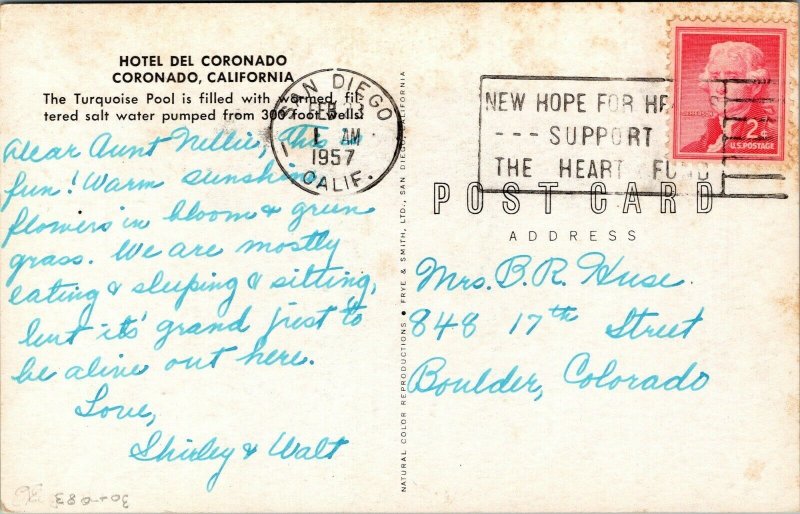 HOTEL DEL CORONADO
CORONADO, CALIFORNIA
The Turquoise Pool is filled with warmed, fil-
tered salt water pumped from 300 foot wells.
Dear Aunt Nellie, This
fun! Warm sunshi
flowers in bloom & green
grass. We are mostly
eating & sleeping & sitting,
but it's grand just to
be alive out here.
Love,
Shirley & Walt
SAN DIEGO
FEB 13
1 AM
1957
CALIF.
1
NATURAL COLOR REPRODUCTIONS • FRYE & SMITH, LTD., SAN DIEGO, CALIFORNIA
NEW HOPE FOR HE
--- SUPPORT
THE HEART FUND
JEFFERSON
2¢
U.S. POSTAGE
POST CARD
ADDRESS
Mrs. B. R. Huse
848 17th Street
Boulder, Colorado